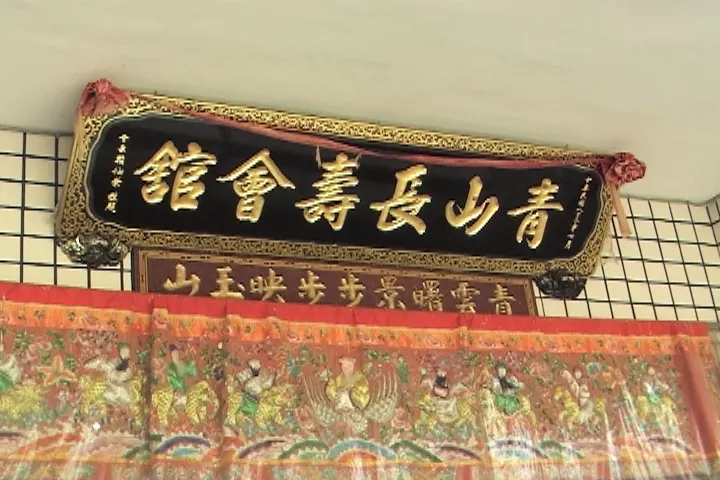 青山長壽會舘
青雲曙景步步映玉山